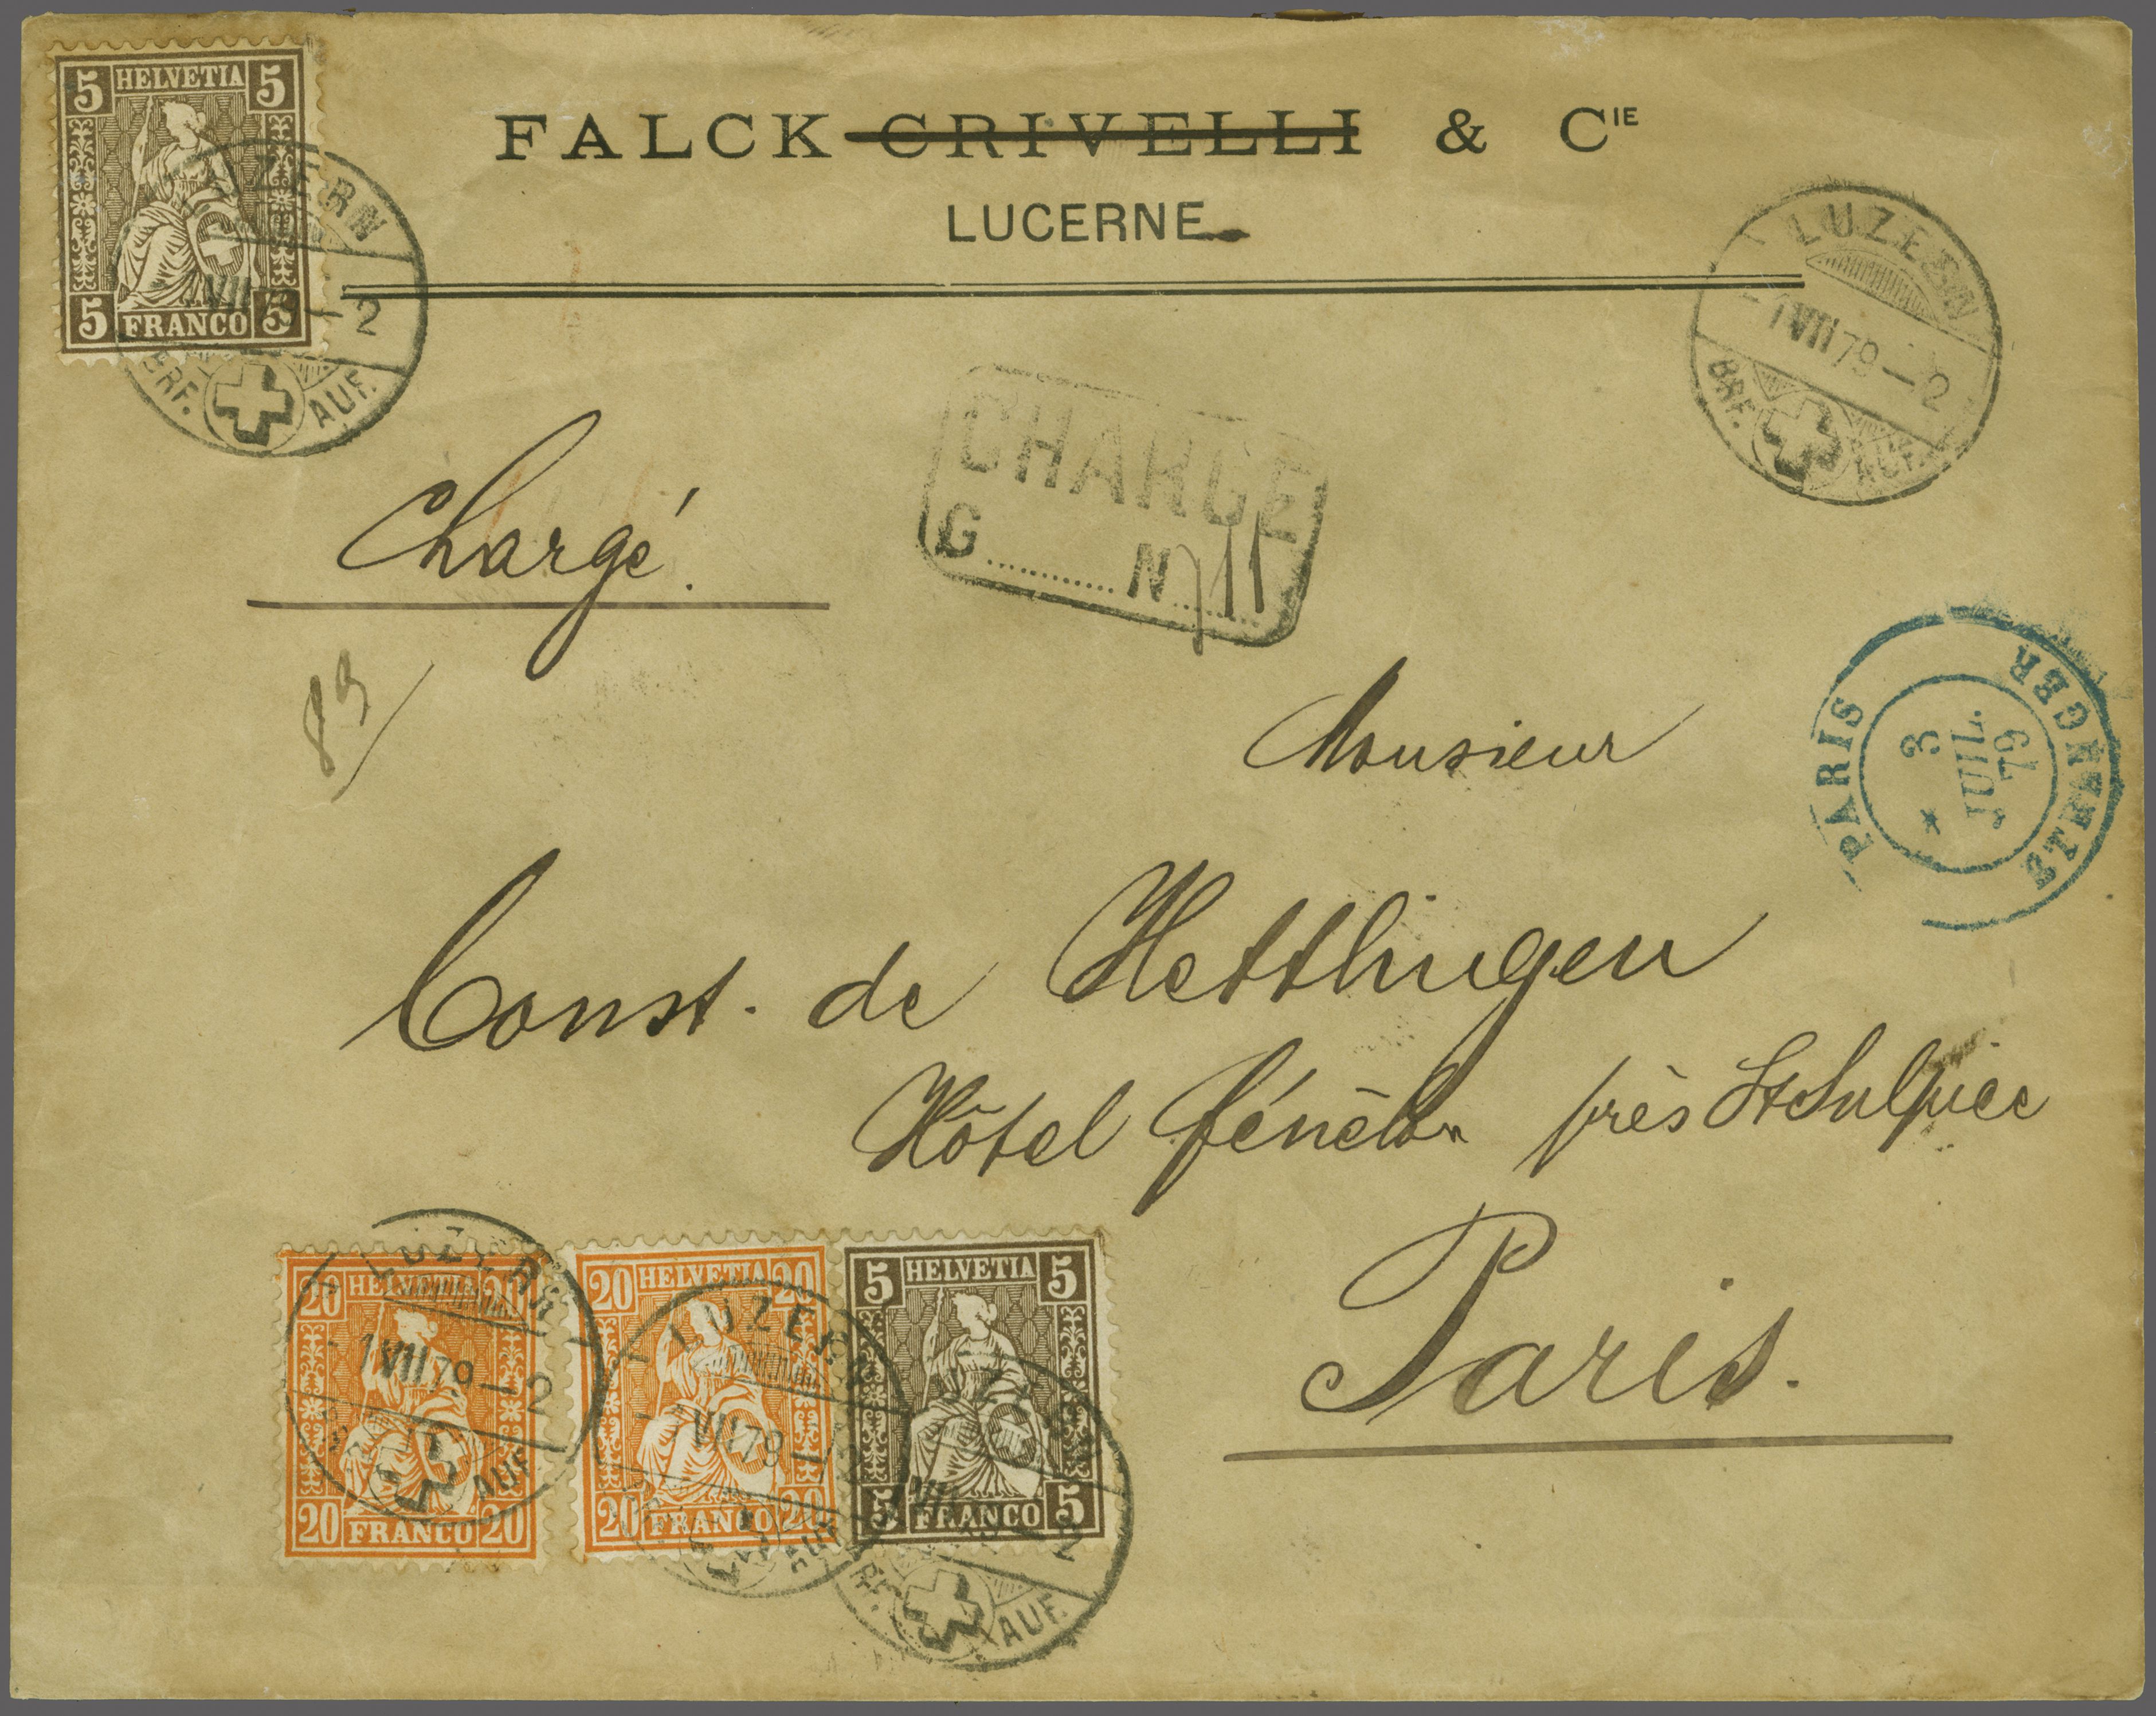 5 HELVETIA 5
5 FRANCO 5
FALCK CRIVELLI & CIE
LUCERNE
LUZERN
-1 VII 79-2
BRF. AUF.
ZERN
VII -2
BRF. AUF.
Chargé.
CHARGÉ
G............N 711
89
Monsieur
PARIS ETRANGER
3 JUIL. 79
Const. de Hettlingen
Hôtel Fénélon près St Sulpice
Paris.
20 HELVETIA 20
20 FRANCO 20
LUZERN
-1 VII 79-2
AUF.
20 HELVETIA 20
20 FRANCO 20
LUZERN
-1 VII 79-2
5 HELVETIA 5
5 FRANCO 5
VII 2
BRF. AUF.